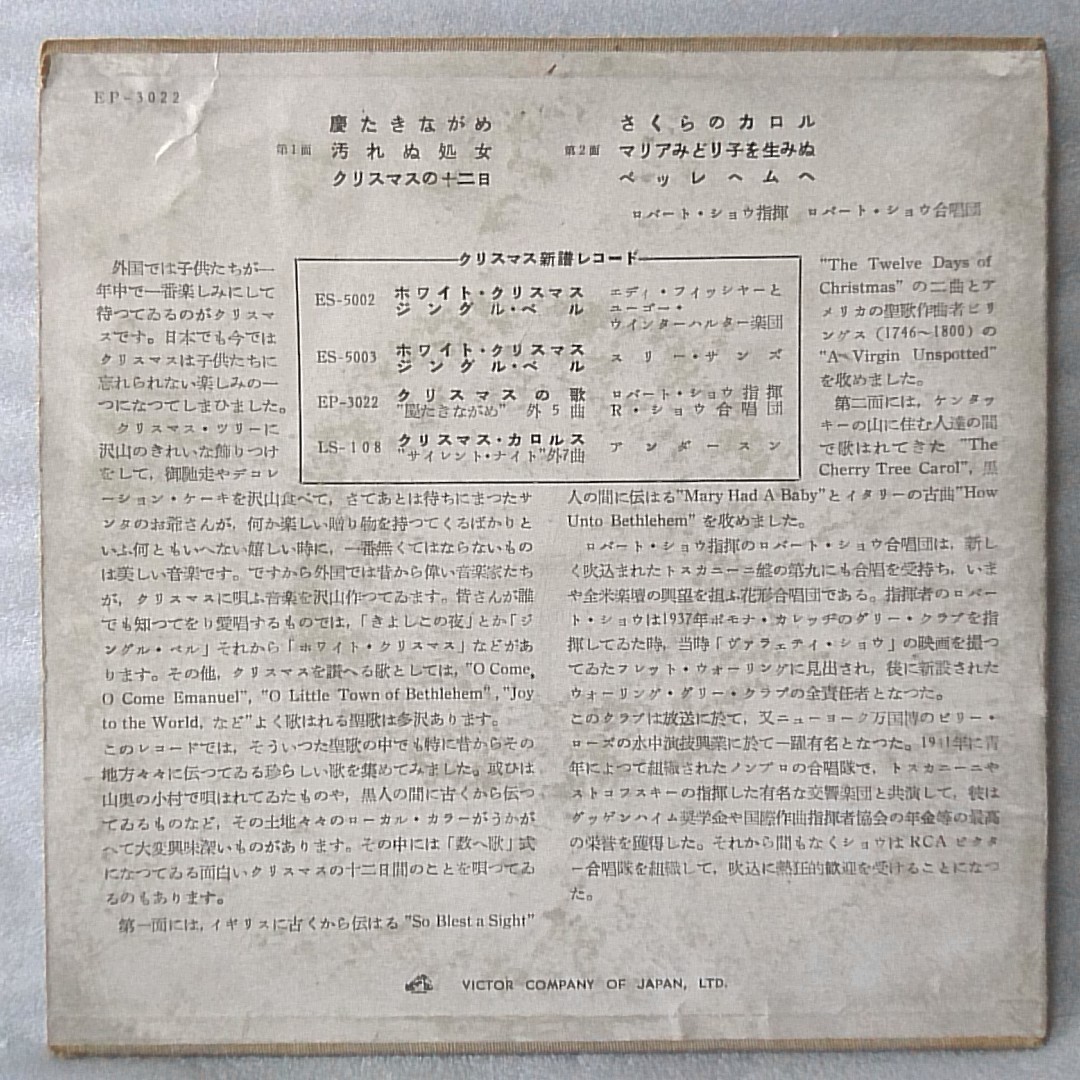 EP-3022
慶たきながめ
第1面 汚れぬ処女
クリスマスの十二日
さくらのカロル
第2面 マリアみどり子を生みぬ
ベッレヘムへ
ロバート・ショウ指揮 ロバート・ショウ合唱団
クリスマス新譜レコード
ES-5002 ホワイト・クリスマス エディ・フィッシャーと
ジングル・ベル ユーゴー・
ウインターハルター楽団
ES-5003 ホワイト・クリスマス スリー・サンズ
ジングル・ベル
EP-3022 クリスマスの歌 ロバート・ショウ指揮
"慶たきながめ" 外5曲 R・ショウ合唱団
LS-108 クリスマス・カロルス アンダースン
"サイレント・ナイト"外7曲
外国では子供たちが一
年中で一番楽しみにして
待つてゐるのがクリスマ
スです。日本でも今では
クリスマスは子供たちに
忘れられない楽しみの一
つになつてしまひました。
クリスマス・ツリーに
沢山のきれいな飾りつけ
をして，御馳走やデコレ
ーション・ケーキを沢山食べて，さてあとは待ちにまつたサ
ンタのお爺さんが，何か楽しい贈り物を持つてくるばかりと
いふ何ともいへない嬉しい時に，一番無くてはならないもの
は美しい音楽です。ですから外国では昔から偉い音楽家たち
が，クリスマスに唄ふ音楽を沢山作つてゐます。皆さんが誰
でも知つてをり愛唱するものでは，「きよしこの夜」とか「ジ
ングル・ベル」それから「ホワイト・クリスマス」などがあ
ります。その他，クリスマスを讃へる歌としては，"O Come,
O Come Emanuel", "O Little Town of Bethlehem", "Joy
to the World, など"よく歌はれる聖歌は多沢あります。
このレコードでは，そういつた聖歌の中でも特に昔からその
地方々々に伝つてゐる珍らしい歌を集めてみました。或ひは
山奥の小村で唄はれてゐたものや，黒人の間に古くから伝つ
てゐるものなど，その土地々々のローカル・カラーがうかが
へて大変興味深いものがあります。その中には「数へ歌」式
になつてゐる面白いクリスマスの十二日間のことを唄つてゐ
るのもあります。
第一面には，イギリスに古くから伝はる "So Blest a Sight"
"The Twelve Days of
Christmas" の二曲とア
メリカの聖歌作曲者ビリ
ングス (1746～1800) の
"A Virgin Unspotted"
を收めました。
第二面には，ケンタッ
キーの山に住む人達の間
で歌はれてきた "The
Cherry Tree Carol", 黒
人の間に伝はる"Mary Had A Baby"とイタリーの古曲"How
Unto Bethlehem" を收めました。
ロバート・ショウ指揮のロバート・ショウ合唱団は，新し
く吹込まれたトスカニーニ盤の第九にも合唱を受持ち，いま
や全米楽壇の興望を担ふ花形合唱団である。指揮者のロバー
ト・ショウは1937年ポモナ・カレッヂのグリー・クラブを指
揮してゐた時，当時「ヴァラェティ・ショウ」の映画を撮つ
てゐたフレット・ウォーリングに見出され，後に新設された
ウォーリング・グリー・クラブの全責任者となつた。
このクラブは放送に於て，又ニューヨーク万国博のビリー・
ローズの水中演技興業に於て一躍有名となつた。1941年に青
年によつて組織されたノンプロの合唱隊で，トスカニーニや
ストコフスキーの指揮した有名な交響楽団と共演して，彼は
グッゲンハイム奨学金や国際作曲指揮者協会の年金等の最高
の栄誉を獲得した。それから間もなくショウは RCA ビクタ
ー合唱隊を組織して，吹込に熱狂的歓迎を受けることになつ
た。
VICTOR COMPANY OF JAPAN, LTD.